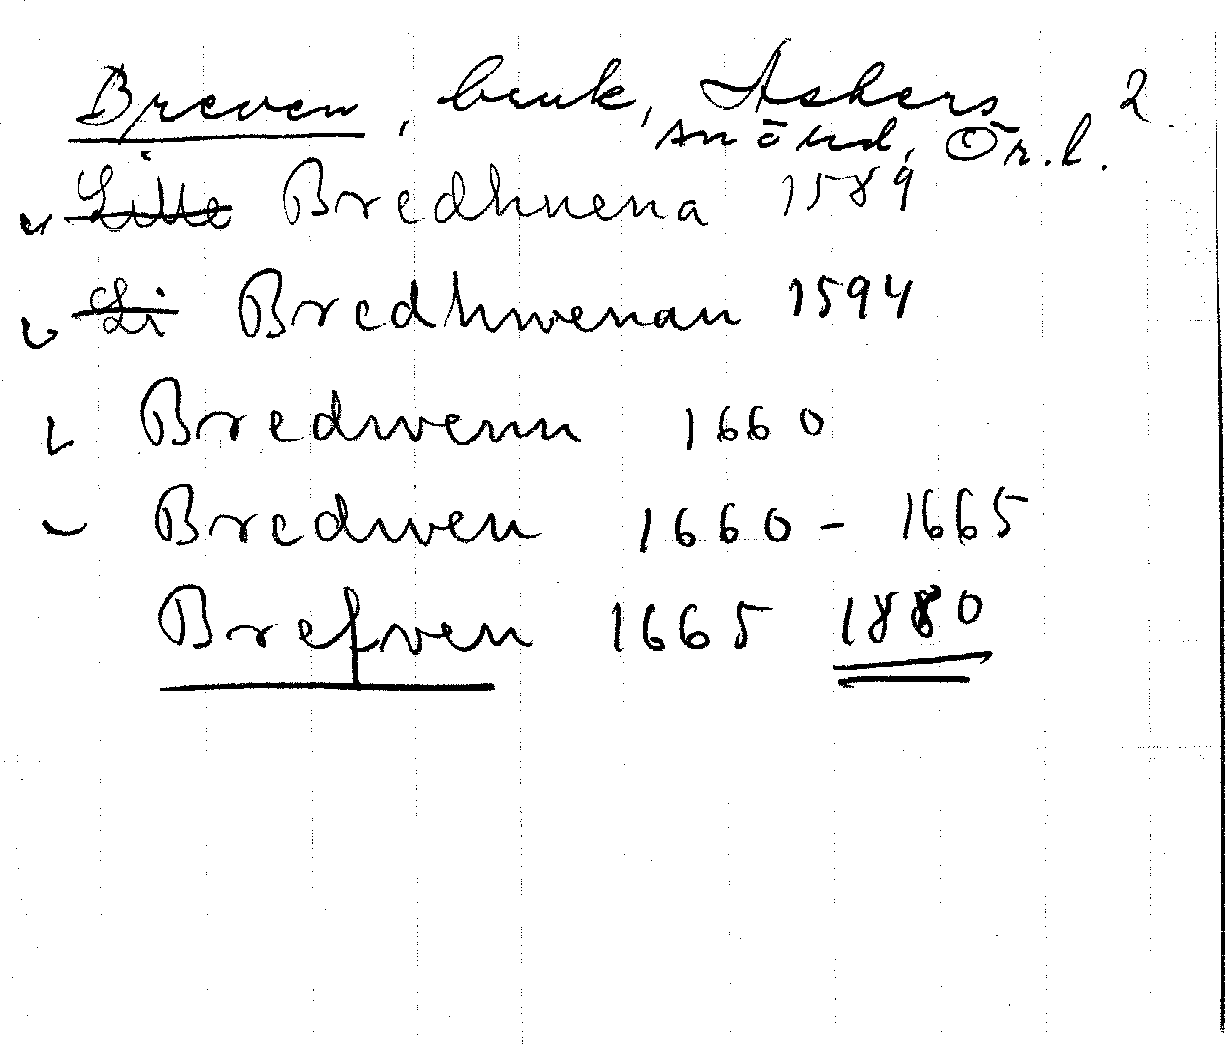 Breven, bruk, Askers 2
sn o hd, Ör.l.
Lille Bredhuena 1589
Li Bredhwenan 1594
Bredwenn 1660
Bredwen 1660 - 1665
Brefven 1665 1880